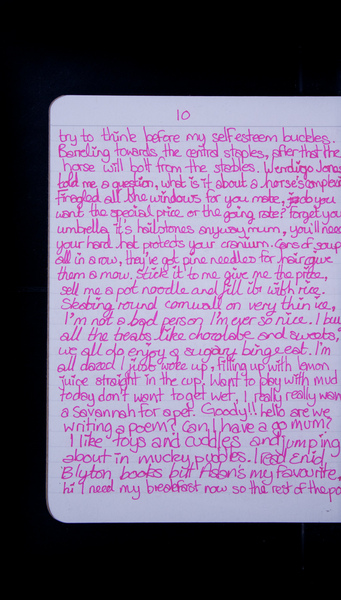 10
try to think before my self esteem buckles.
Bending towards the central staples, after that the
horse will bolt from the stables. Wendigo Jones
told me a question, what is it about a horse's
Fireglod all the windows for you mate,
want the special price or the going rate? forget your
umbrella it's hailstones anyway mum, you'll need
your hard hat protects your cranium. Cans of soup
all in a row, they've got pine needles for hair give
them a mow. Stick it to me give me the pitta,
sell me a pot noodle and fill it with rice.
Skating round Cornwall on very thin ice,
I'm not a bad person I'm ever so nice. I buy
all the treats like chocolate and sweets,
we all do enjoy a sugary binge eat. I'm
all dazed I just woke up, filling up with lemon
juice straight in the cup. Want to play with mud
today don't want to get wet, I really really want
a Savannah for a pet. Goody!! hello are we
writing a poem? Can I have a go mum?
I like toys and cuddles and jumping
about in mucky puddles. I read Enid
Blyton books but Aslan's my favourite,
hi I need my breakfast now so the rest of the